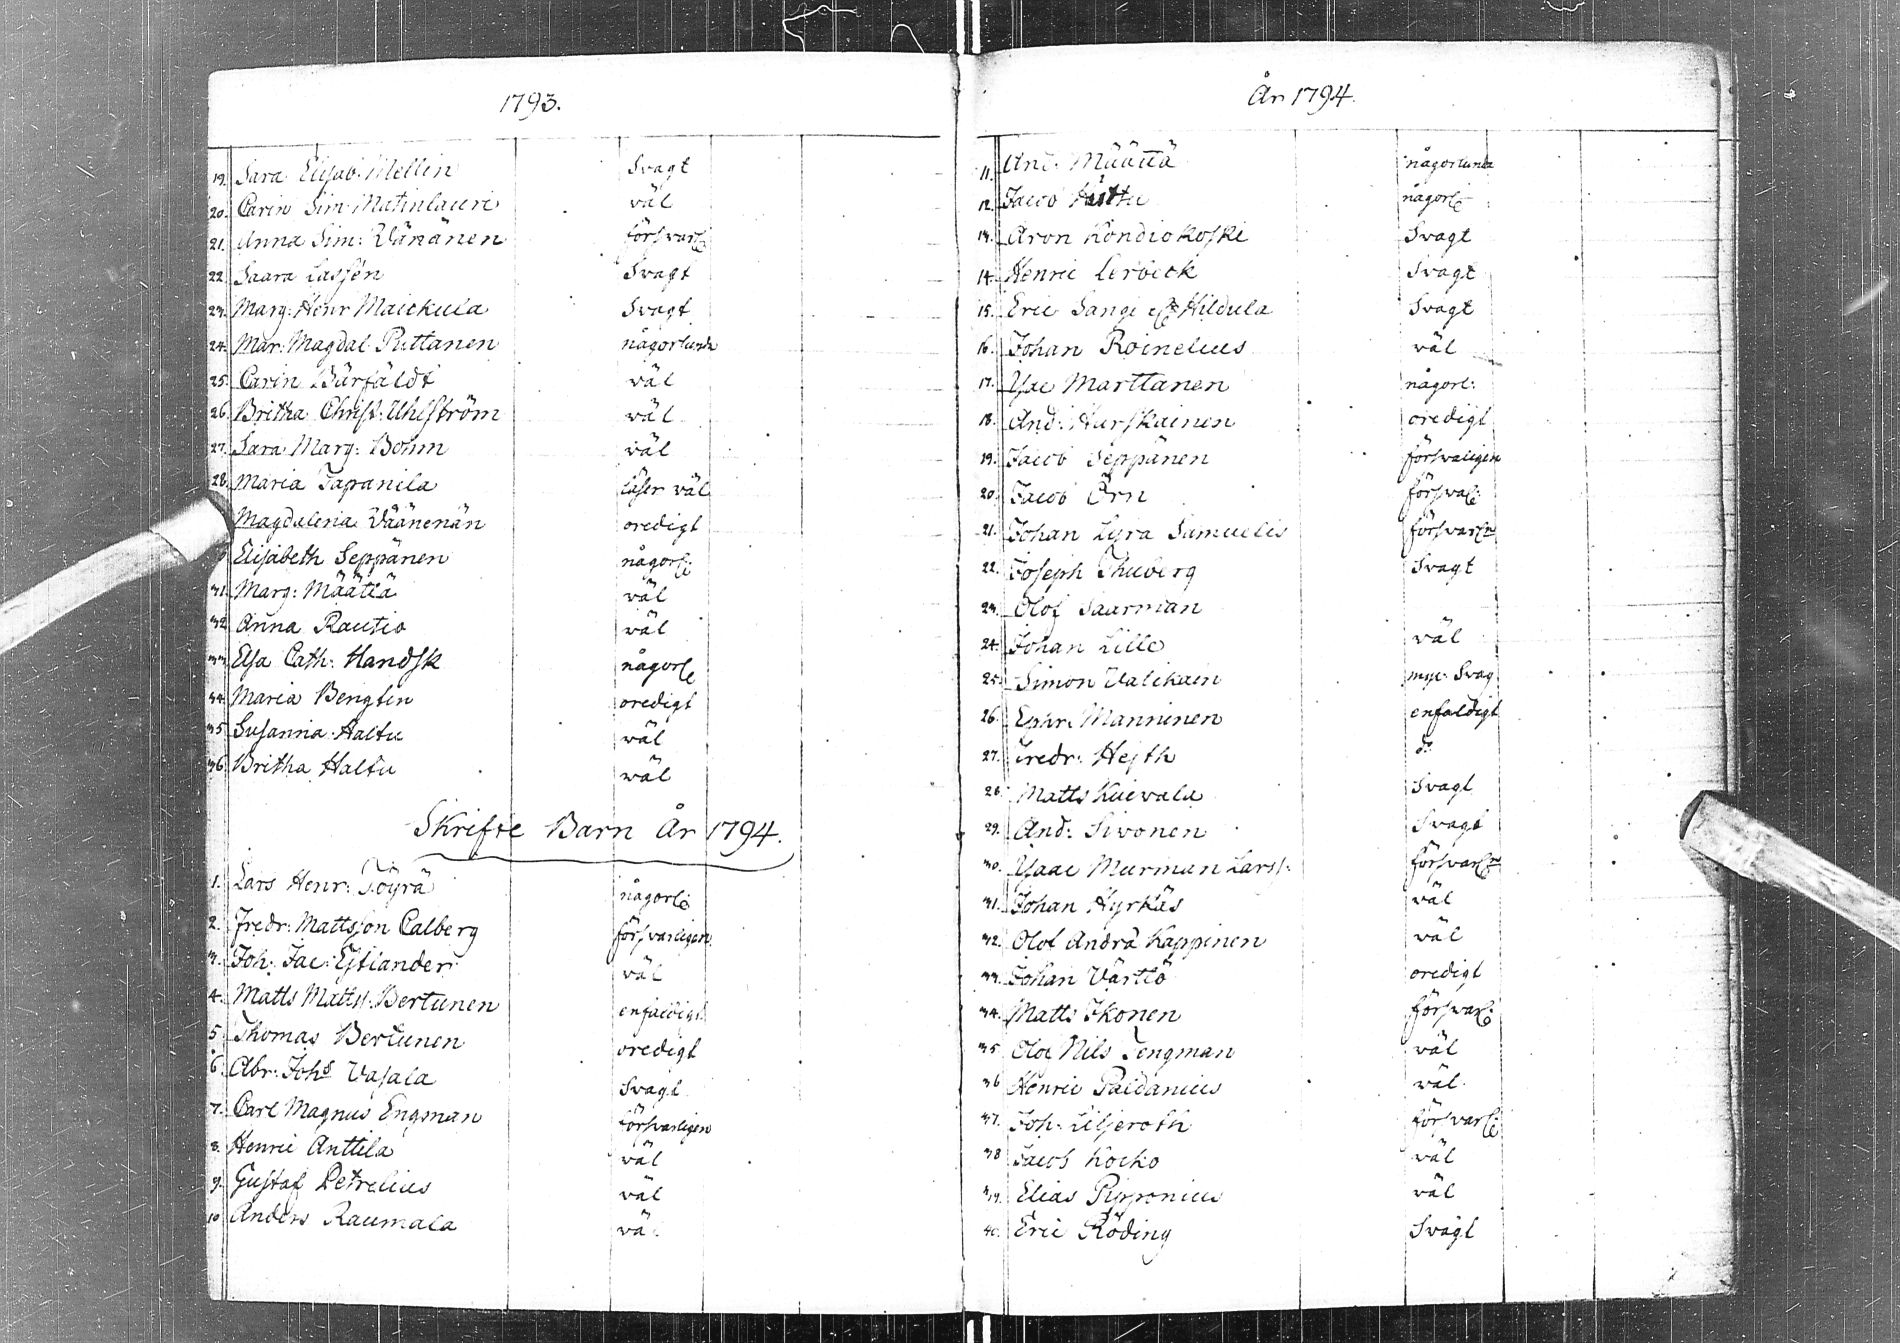 1793.
19. Sara Elisab: Mellin Svagt
20. Carin Sim: Matinlauri väl
21. Anna Sim: Wänänen försvarl:
22. Saara Lassén Svagt
23. Marg: Henr Maickula Svagt
24. Mar: Magdal Puttanen någorlunda
25. Carin väl
26. Britha Christ: Uhlström väl
27. Sara Marg: Bohm väl
28. Maria Tapanila läser väl
Magdalena Väänenän oredigt
Elisabeth Seppänen någorl:
31. Marg: Määttä väl
32. Anna Rautio väl
33. Elsa Cath: Handsk någorl:
34. Maria Bengten oredigt
35 Susanna Haltu väl
36. Britha Haltu väl
Skrifte Barn År 1794.
1. Lars Henr: Töyrä någorl:
2. Fredr: Mattsson Calberg försvarligen
3. Joh: Jac: Estlander väl
4. Matts Matts: Bertunen enfaldigt
5. Thomas Bertunen oredigt
6. Abr: Johs Vasala Svagt
7. Carl Magnus Engman försvarligen
8. Henric Anttila väl
9. Gustaf Petrelius väl
10 Anders Raumala väl
År 1794.
11. And: Määttä någorlunda
12. Jacob någorl:
13. Aron Kondiokoski Svagt
14. Henric Lerbeck Svagt
15. Eric Sangi Hildula Svagt
16. Johan Roinelius väl
17. Isac Marttanen någorl:
18. And: Hurskainen oredigt
19. Jacob Seppänen försvaligen
20. Jacob Örn försval:
21. Johan Lyra Samuelis försvarl:n
22. Joseph Thuberg Svagt
23. Olof Saarman
24. Johan Lille väl
25. Simon Valikain myc: Svag
26. Ephr: Manninen enfaldigt
27. Fredr: Hejth do
28. Matts Kuivala Svagt
29. And: Sivonen Svagt
30. Isaac Murman Larss: försvarl:n
31. Johan Hyrkäs väl
32. Olof Andrä Kappinen väl
33. Johan Värttö oredigt
34. Matts Ikonen försvarl:
35 Olof Nils Tengman väl
36 Henric Paldanius väl
37. Joh: Liljeroth försvarl:
38 Jacob Kocko väl
39. Elias Pipponius väl
40. Eric Röding Svagt